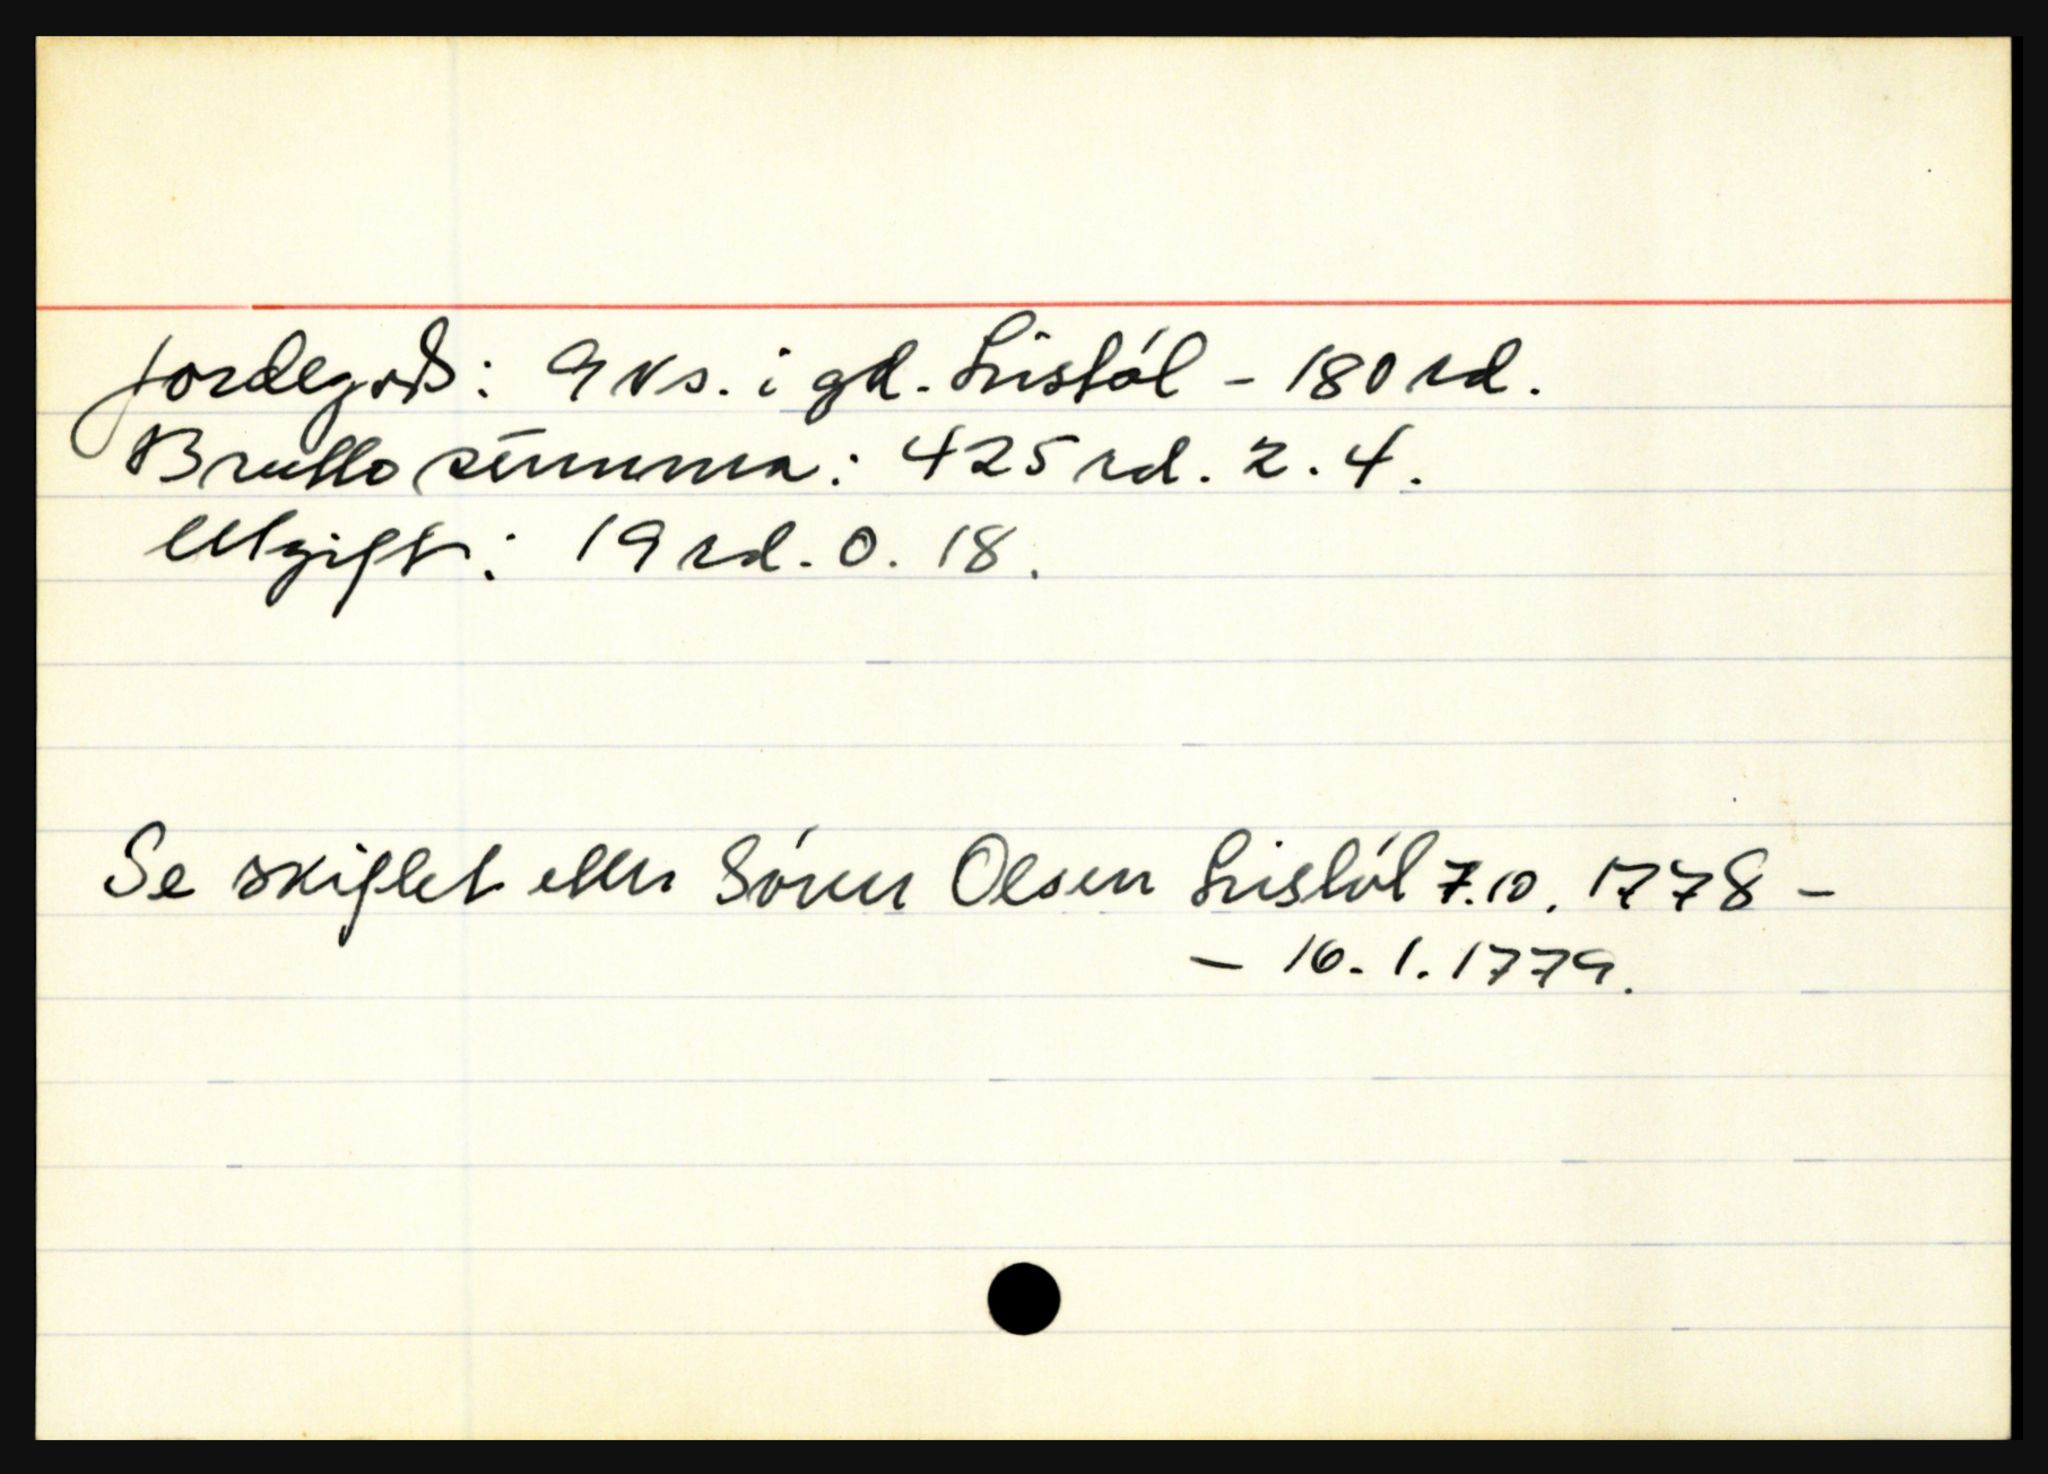 Jordegods: 9 ks. i gd. Listøl - 180 rd.
Brutto summa: 425 rd. 2. 4.
Utgift: 19 rd. 0. 18.
Se skiftet etter Sören Olsen Listøl 7.10.1778 -
- 16. 1. 1779.